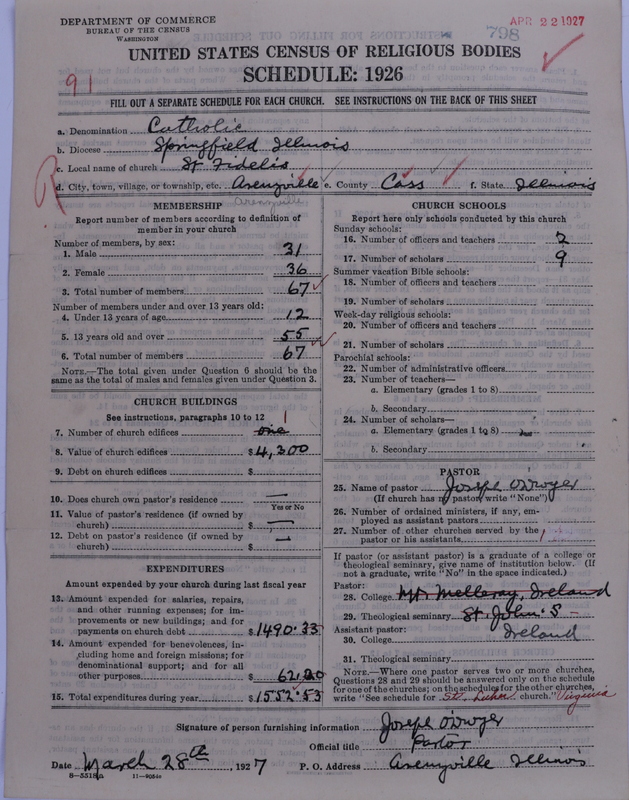 DEPARTMENT OF COMMERCE
BUREAU OF THE CENSUS
WASHINGTON
APR 22 1927
798
UNITED STATES CENSUS OF RELIGIOUS BODIES
SCHEDULE: 1926
91
FILL OUT A SEPARATE SCHEDULE FOR EACH CHURCH. SEE INSTRUCTIONS ON THE BACK OF THIS SHEET
a. Denomination Catholic
b. Diocese Springfield Illinois
c. Local name of church St. Fidelis
d. City, town, village, or township, etc. Arenzville e. County Cass f. State Illinois
Arenzville
MEMBERSHIP
Report number of members according to definition of member in your church
Number of members, by sex:
1. Male 31
2. Female 36
3. Total number of members 67
Number of members under and over 13 years old:
4. Under 13 years of age 12
5. 13 years old and over 55
6. Total number of members 67
NOTE.—The total given under Question 6 should be the same as the total of males and females given under Question 3.
CHURCH BUILDINGS
See instructions, paragraphs 10 to 12
7. Number of church edifices one 1
8. Value of church edifices $4,300
9. Debt on church edifices $
10. Does church own pastor's residence —
Yes or No
11. Value of pastor's residence (if owned by church) $ —
12. Debt on pastor's residence (if owned by church) $ —
EXPENDITURES
Amount expended by your church during last fiscal year
13. Amount expended for salaries, repairs, and other running expenses; for improvements or new buildings; and for payments on church debt $1490.33
14. Amount expended for benevolences, including home and foreign missions; for denominational support; and for all other purposes $ 62.20
15. Total expenditures during year $1552.53
CHURCH SCHOOLS
Report here only schools conducted by this church
Sunday schools:
16. Number of officers and teachers 2
17. Number of scholars 9
Summer vacation Bible schools:
18. Number of officers and teachers
19. Number of scholars
Week-day religious schools:
20. Number of officers and teachers
21. Number of scholars
Parochial schools:
22. Number of administrative officers
23. Number of teachers—
a. Elementary (grades 1 to 8)
b. Secondary
24. Number of scholars—
a. Elementary (grades 1 to 8)
b. Secondary
PASTOR
25. Name of pastor Joseph O'Dwyer
(If church has no pastor, write "None")
26. Number of ordained ministers, if any, employed as assistant pastors
27. Number of other churches served by the pastor or his assistants 1
If pastor (or assistant pastor) is a graduate of a college or theological seminary, give name of institution below. (If not a graduate, write "No" in the space indicated.)
Pastor:
28. College Mt. Melleray, Ireland
29. Theological seminary St. John's —
Assistant pastor: Ireland
30. College
31. Theological seminary
NOTE.—Where one pastor serves two or more churches, Questions 28 and 29 should be answered only on the schedule for one of the churches; on the schedules for the other churches, write "See schedule for St. Lukes church." Virginia
Signature of person furnishing information Joseph O'Dwyer
Official title Pastor
Date March 28th, 1927 P. O. Address Arenzville Illinois
8—5518a 11—9054c